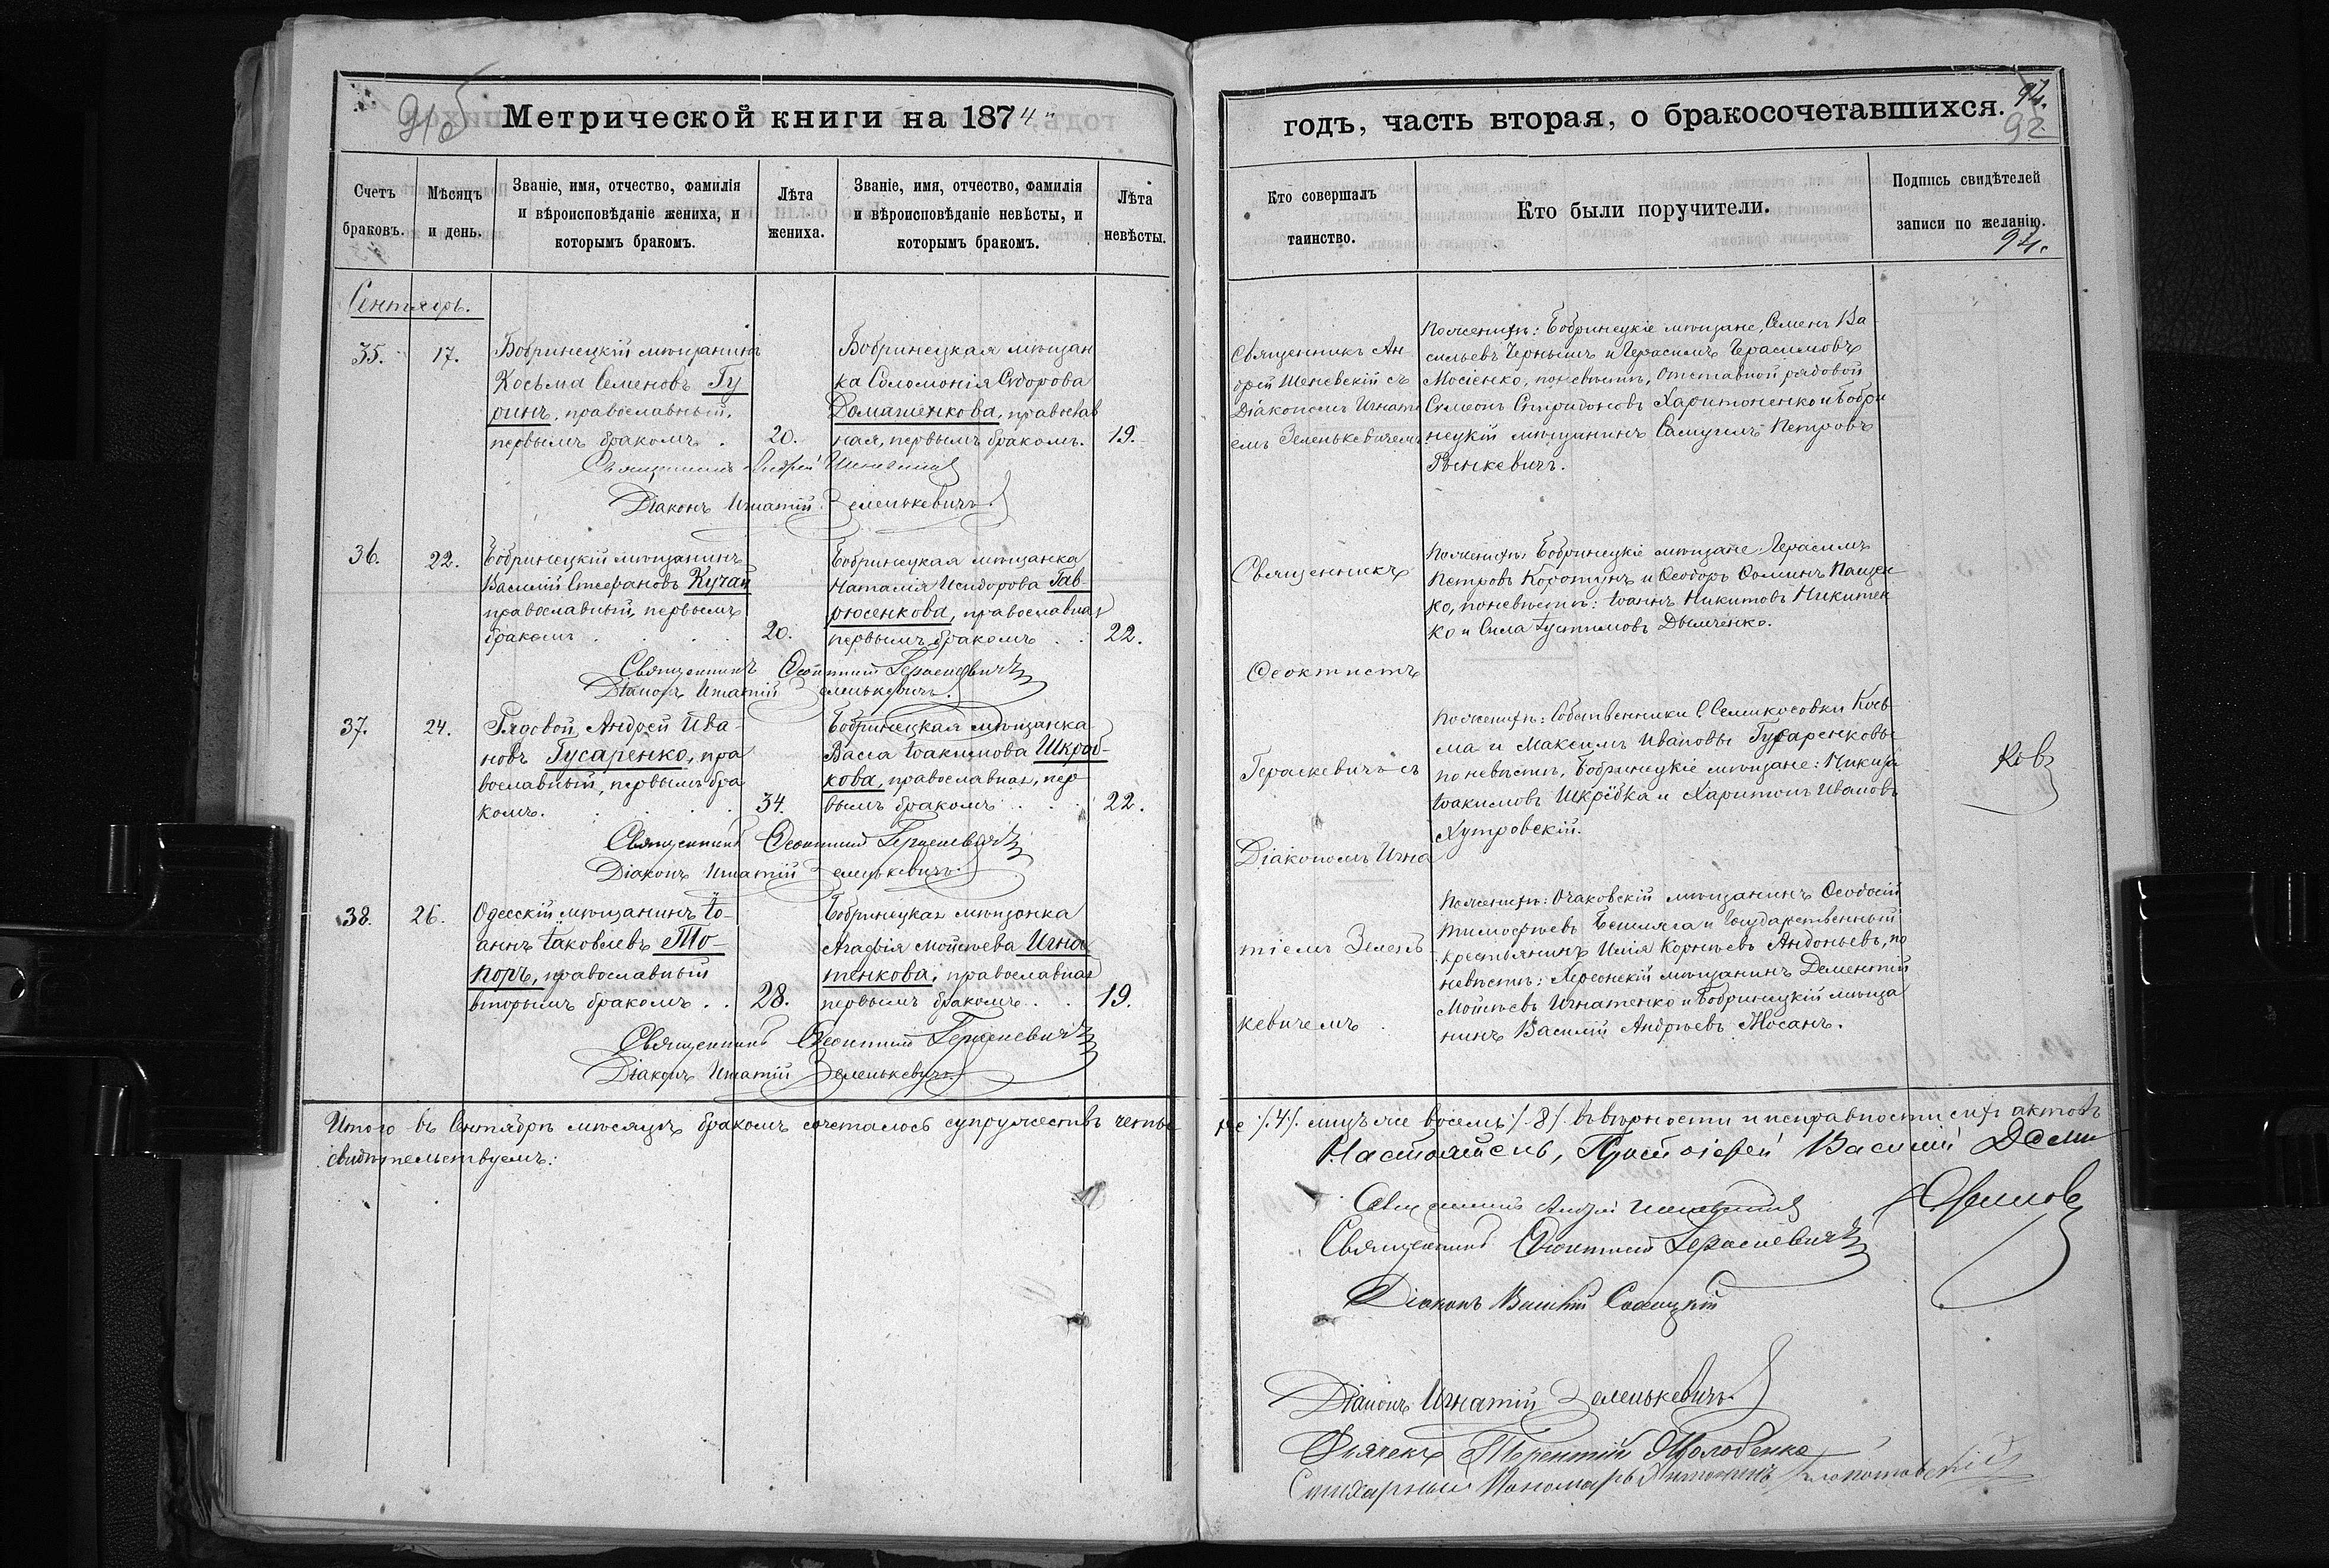 91об
Метрической книги на 1874
Счетъ браковъ.
Мѣсяцъ и день.
Званіе, имя, отчество, фамилія и вѣроисповѣданіе жениха, и которымъ бракомъ.
Лѣта жениха.
Званіе, имя, отчество, фамилія и вѣроисповѣданіе невѣсты, и которымъ бракомъ.
Лѣта невѣсты.
Сентябрь.
35.
17.
Бобринецкій мѣщанинъ
Косьма Семеновъ Гу
ринъ, православный,
первымъ бракомъ.
20.
Бобринецкая мѣщан
ка Соломонія Сидорова
Домашенкова, православ
ная, первымъ бракомъ.
19.
Священникъ Андрей Шеневскій
Діаконъ Игнатій Зеленькевичъ.
36.
22.
Бобринецкій мѣщанинъ
Василій Стефановъ Кучай
православный, первымъ
бракомъ
20.
Бобринецкая мѣщанка
Наталія Исидорова Гав-
рюсенкова, православная
первымъ бракомъ
22.
Священникъ Ѳеоктистъ Гераскевичъ
Діаконъ Игнатій Зеленькевичъ.
37.
24.
Рядовой Андрей Ива-
новъ Гусаренко, пра
вославный, первымъ бра
комъ.
34.
Бобринецкая мѣщанка
Васса Іоакимова Шкраб-
кова, православная, пер
вымъ бракомъ
22.
Священникъ Ѳеоктистъ Гераскевичъ
Діаконъ Игнатій Зеленькевичъ.
38.
26.
Одесскій мѣщанинъ Іо-
аннъ Іаковлевъ То-
поръ, православный
вторымъ бракомъ
28.
Бобринецкая мѣщанка
Агафія Мойсѣева Игна
тенкова, православная
первымъ бракомъ
19.
Священникъ Ѳеоктистъ Гераскевичъ
Діаконъ Игнатій Зеленькевичъ.
Итого въ Сентябрѣ мѣсяцѣ бракомъ сочеталось супружествъ четы
свидѣтельствуемъ:
годъ, часть вторая, о бракосочетавшихся.
94.
92
Кто совершалъ таинство.
Кто были поручители.
Подпись свидѣтелей записи по желанію.
94.
Священникъ Ан-
дрей Шеневскій съ
Діакономъ Игнаті
емъ Зеленькевичемъ
По женихѣ: Бобринецкіе мѣщане, Семенъ Ва
сильевъ Чернышъ и Герасимъ Герасимовъ
Мосіенко, по невѣстѣ, Отставной рядовой
Симеонъ Спиридоновъ Харитоненко и Бобри
нецкій мѣщанинъ Самуилъ Петровъ
Ринкевичъ.
Священникъ
Ѳеоктистъ
Гераскевичъ съ
Діакономъ Игна
тіемъ Зелень
кевичемъ
По женихѣ: Бобринецкіе мѣщане: Герасимъ
Петровъ Коротунъ и Ѳеодоръ Ѳоминъ Пащен
ко, по невѣстѣ: Іоаннъ Никитовъ Никитен
ко и Сила Іустимовъ Дымченко.
По женихѣ: Собственники С. Семикосовки Кось
ма и Максимъ Ивановы Гусаренковы
по невѣстѣ, Бобринецкіе мѣщане: Никита
Іоакимовъ Шкребка и Харитонъ Ивановъ
Хутровскій.
ковъ
По женихѣ: Очаковскій мѣщанинъ Ѳеодосій
Тимофѣевъ Бешляга и Государственный
крестьянинъ Илія Корнѣевъ Андоньевъ, по
невѣстѣ: Херсонскій мѣщанинъ Дементій
Мойсѣевъ Игнатенко и Бобринецкій мѣща
нинъ Василій Андреевъ Носанъ.
ре /4/. мущъ же восемь /8/. въ вѣрности и исправности сихъ актовъ
Настоятель, Протоіерей Василій
Священникъ Андрей Шеневскій
Священникъ Ѳеоктистъ Гераскевичъ
Діаконъ Василій
Діаконъ Игнатій Зеленькевичъ.
Дьячекъ Терентій
Стихарный Пономарь